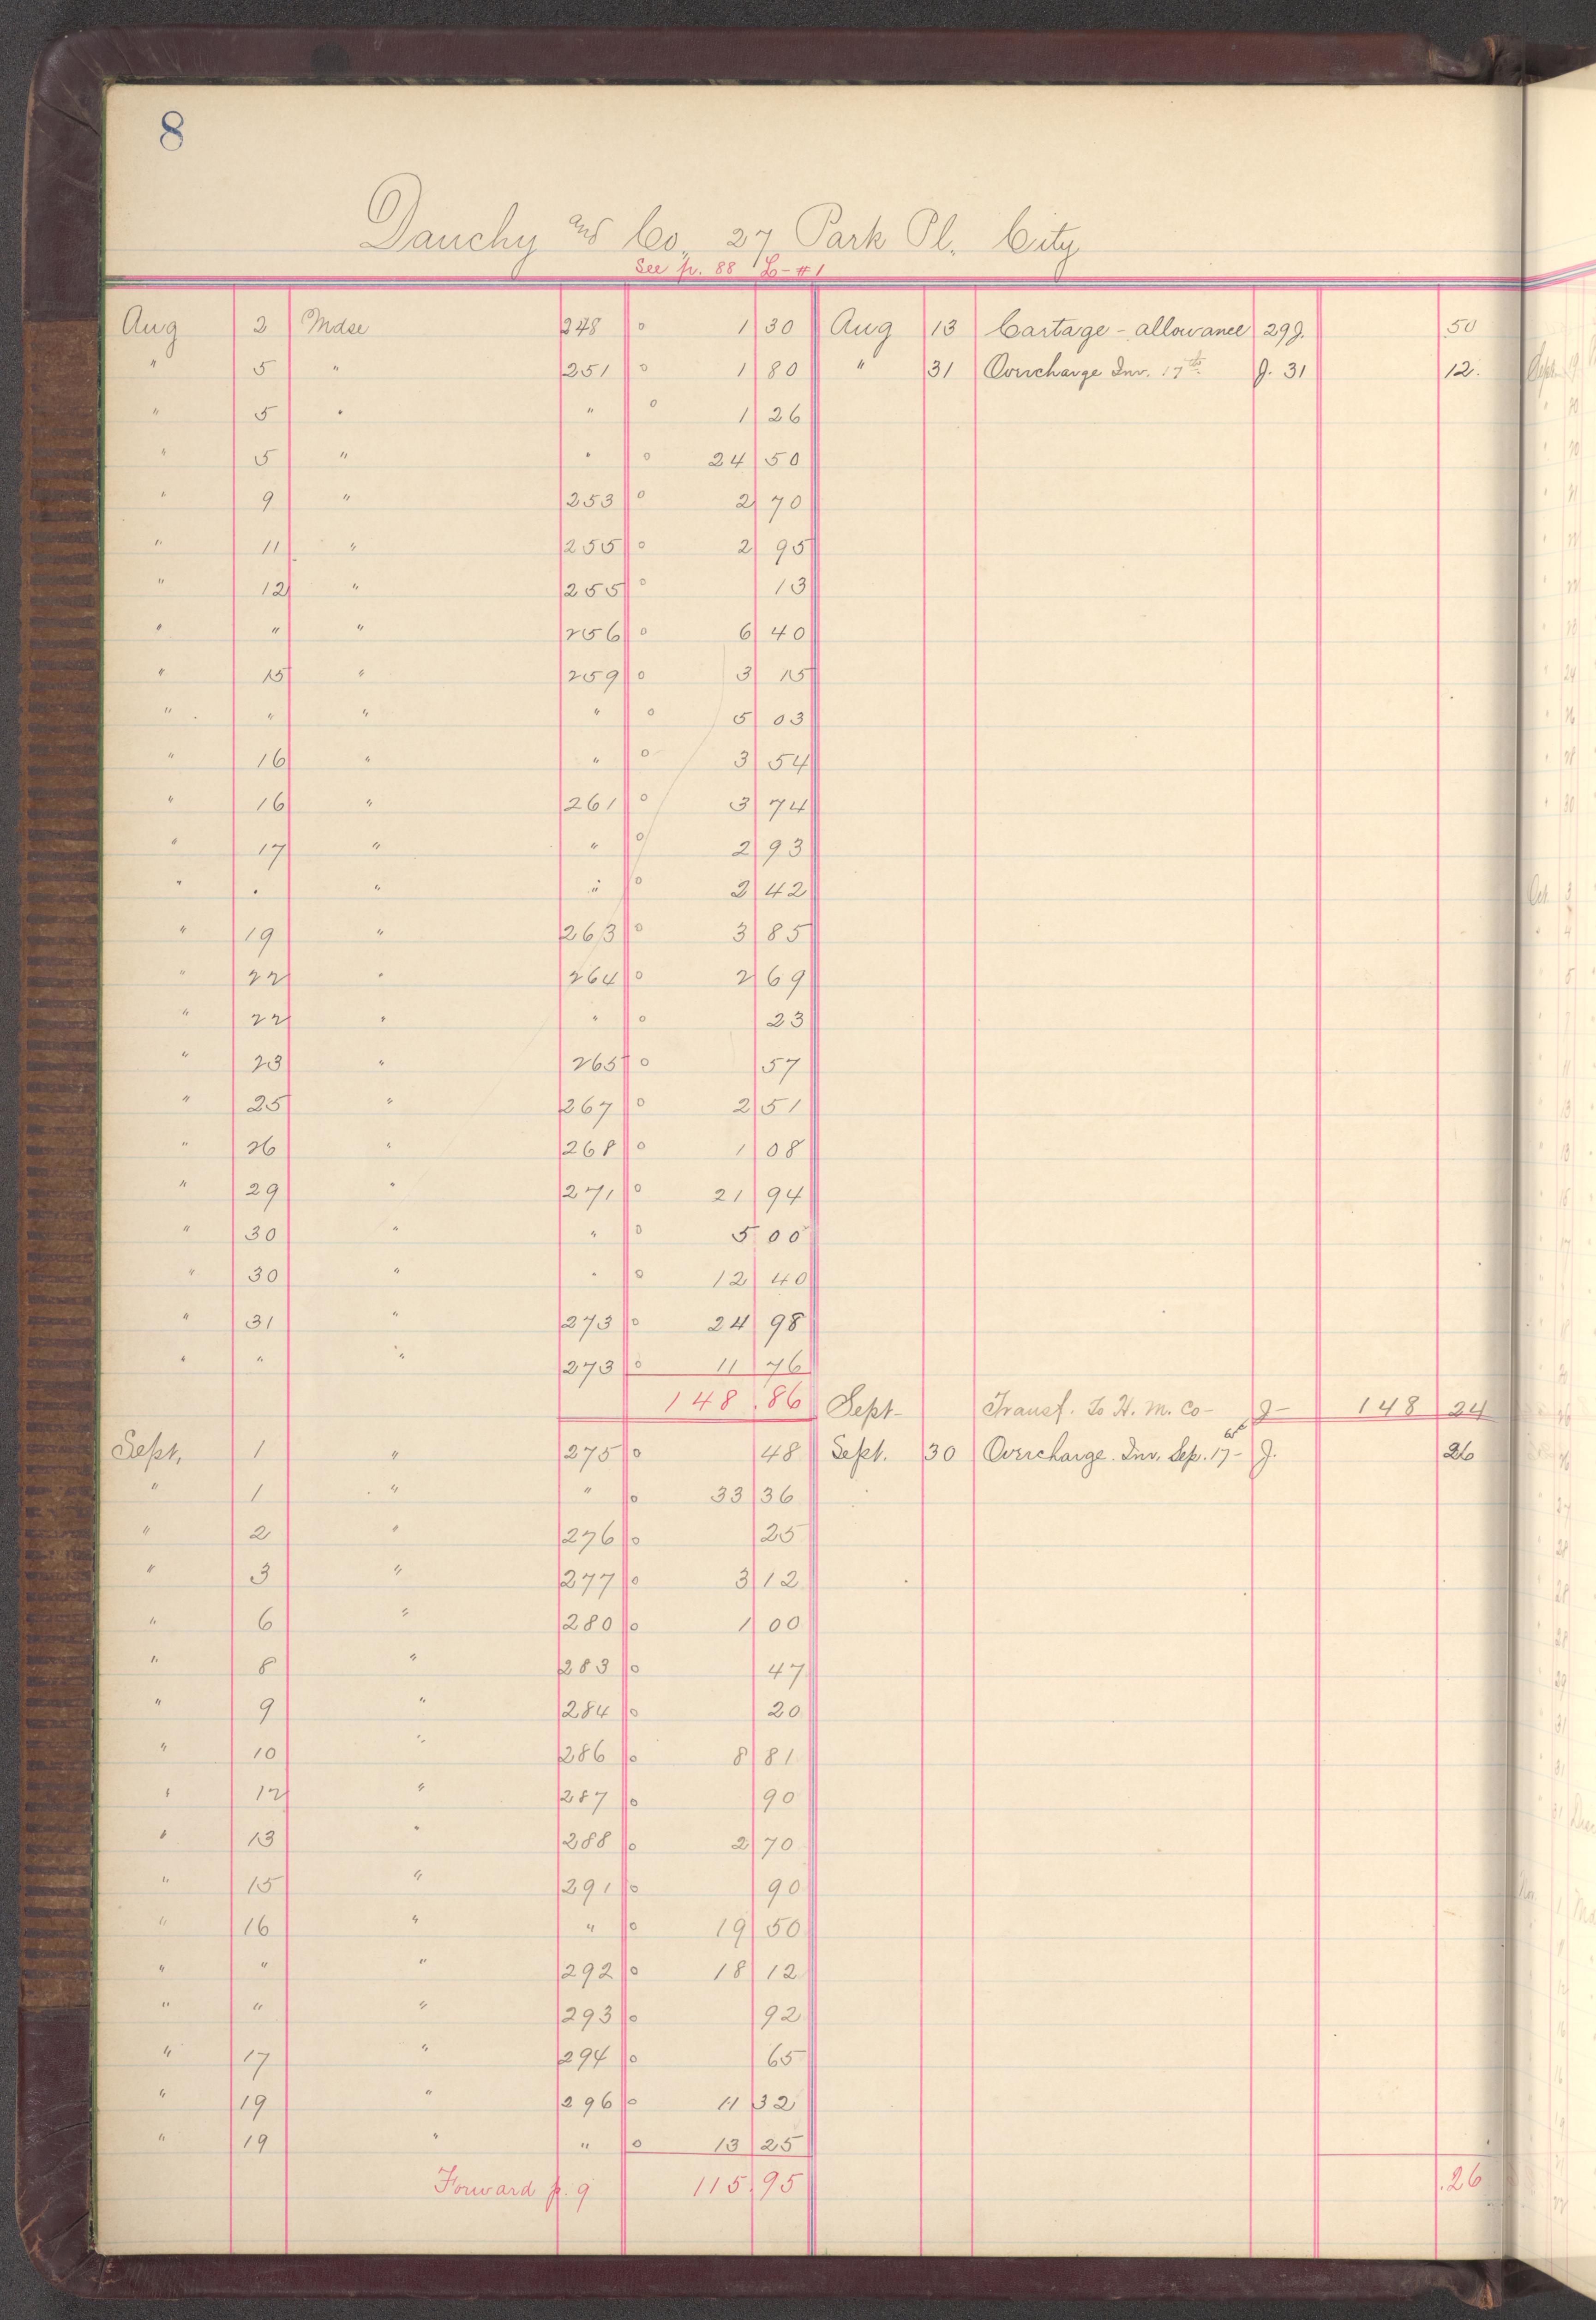 8
Dauchy and Co. 27 Park Pl. City
See p. 88 L-#1
Aug 2 Mdse 248 o 1 30 Aug 13 Cartage - allowance 29 J. 50
" 5 " 251 o 1 80 " 31 Overcharge Inv. 17th J. 31 12.
" 5 " " o 1 26
" 5 " " o 24 50
" 9 " 253 o 2 70
" 11 " 255 o 2 95
" 12 " 255 o 13
" " " 256 o 6 40
" 15 " 259 o 3 15
" " " " o 5 03
" 16 " " o 3 54
" 16 " 261 o 3 74
" 17 " " o 2 93
" " " " o 2 42
" 19 " 263 o 3 85
" 22 " 264 o 2 69
" 22 " " o 23
" 23 " 265 o 57
" 25 " 267 o 2 51
" 26 " 268 o 1 08
" 29 " 271 o 21 94
" 30 " " o 5 00
" 30 " " o 12 40
" 31 " 273 o 24 98
" " " 273 o 11 76
148.86 Sept- Transf. to H. M. Co- J- 148 24
Sept. 1 " 275 o 48 Sept. 30 Overcharge. Inv. Sep. 17- J. 26
" 1 " " o 33 36
" 2 " 276 o 25
" 3 " 277 o 3 12
" 6 " 280 o 1 00
" 8 " 283 o 47
" 9 " 284 o 20
" 10 " 286 o 8 81
" 12 " 287 o 90
" 13 " 288 o 2 70
" 15 " 291 o 90
" 16 " " o 19 50
" " " 292 o 18 12
" " " 293 o 92
" 17 " 294 o 65
" 19 " 296 o 11 32
" 19 " " o 13 25
Forward p. 9 115.95 .26